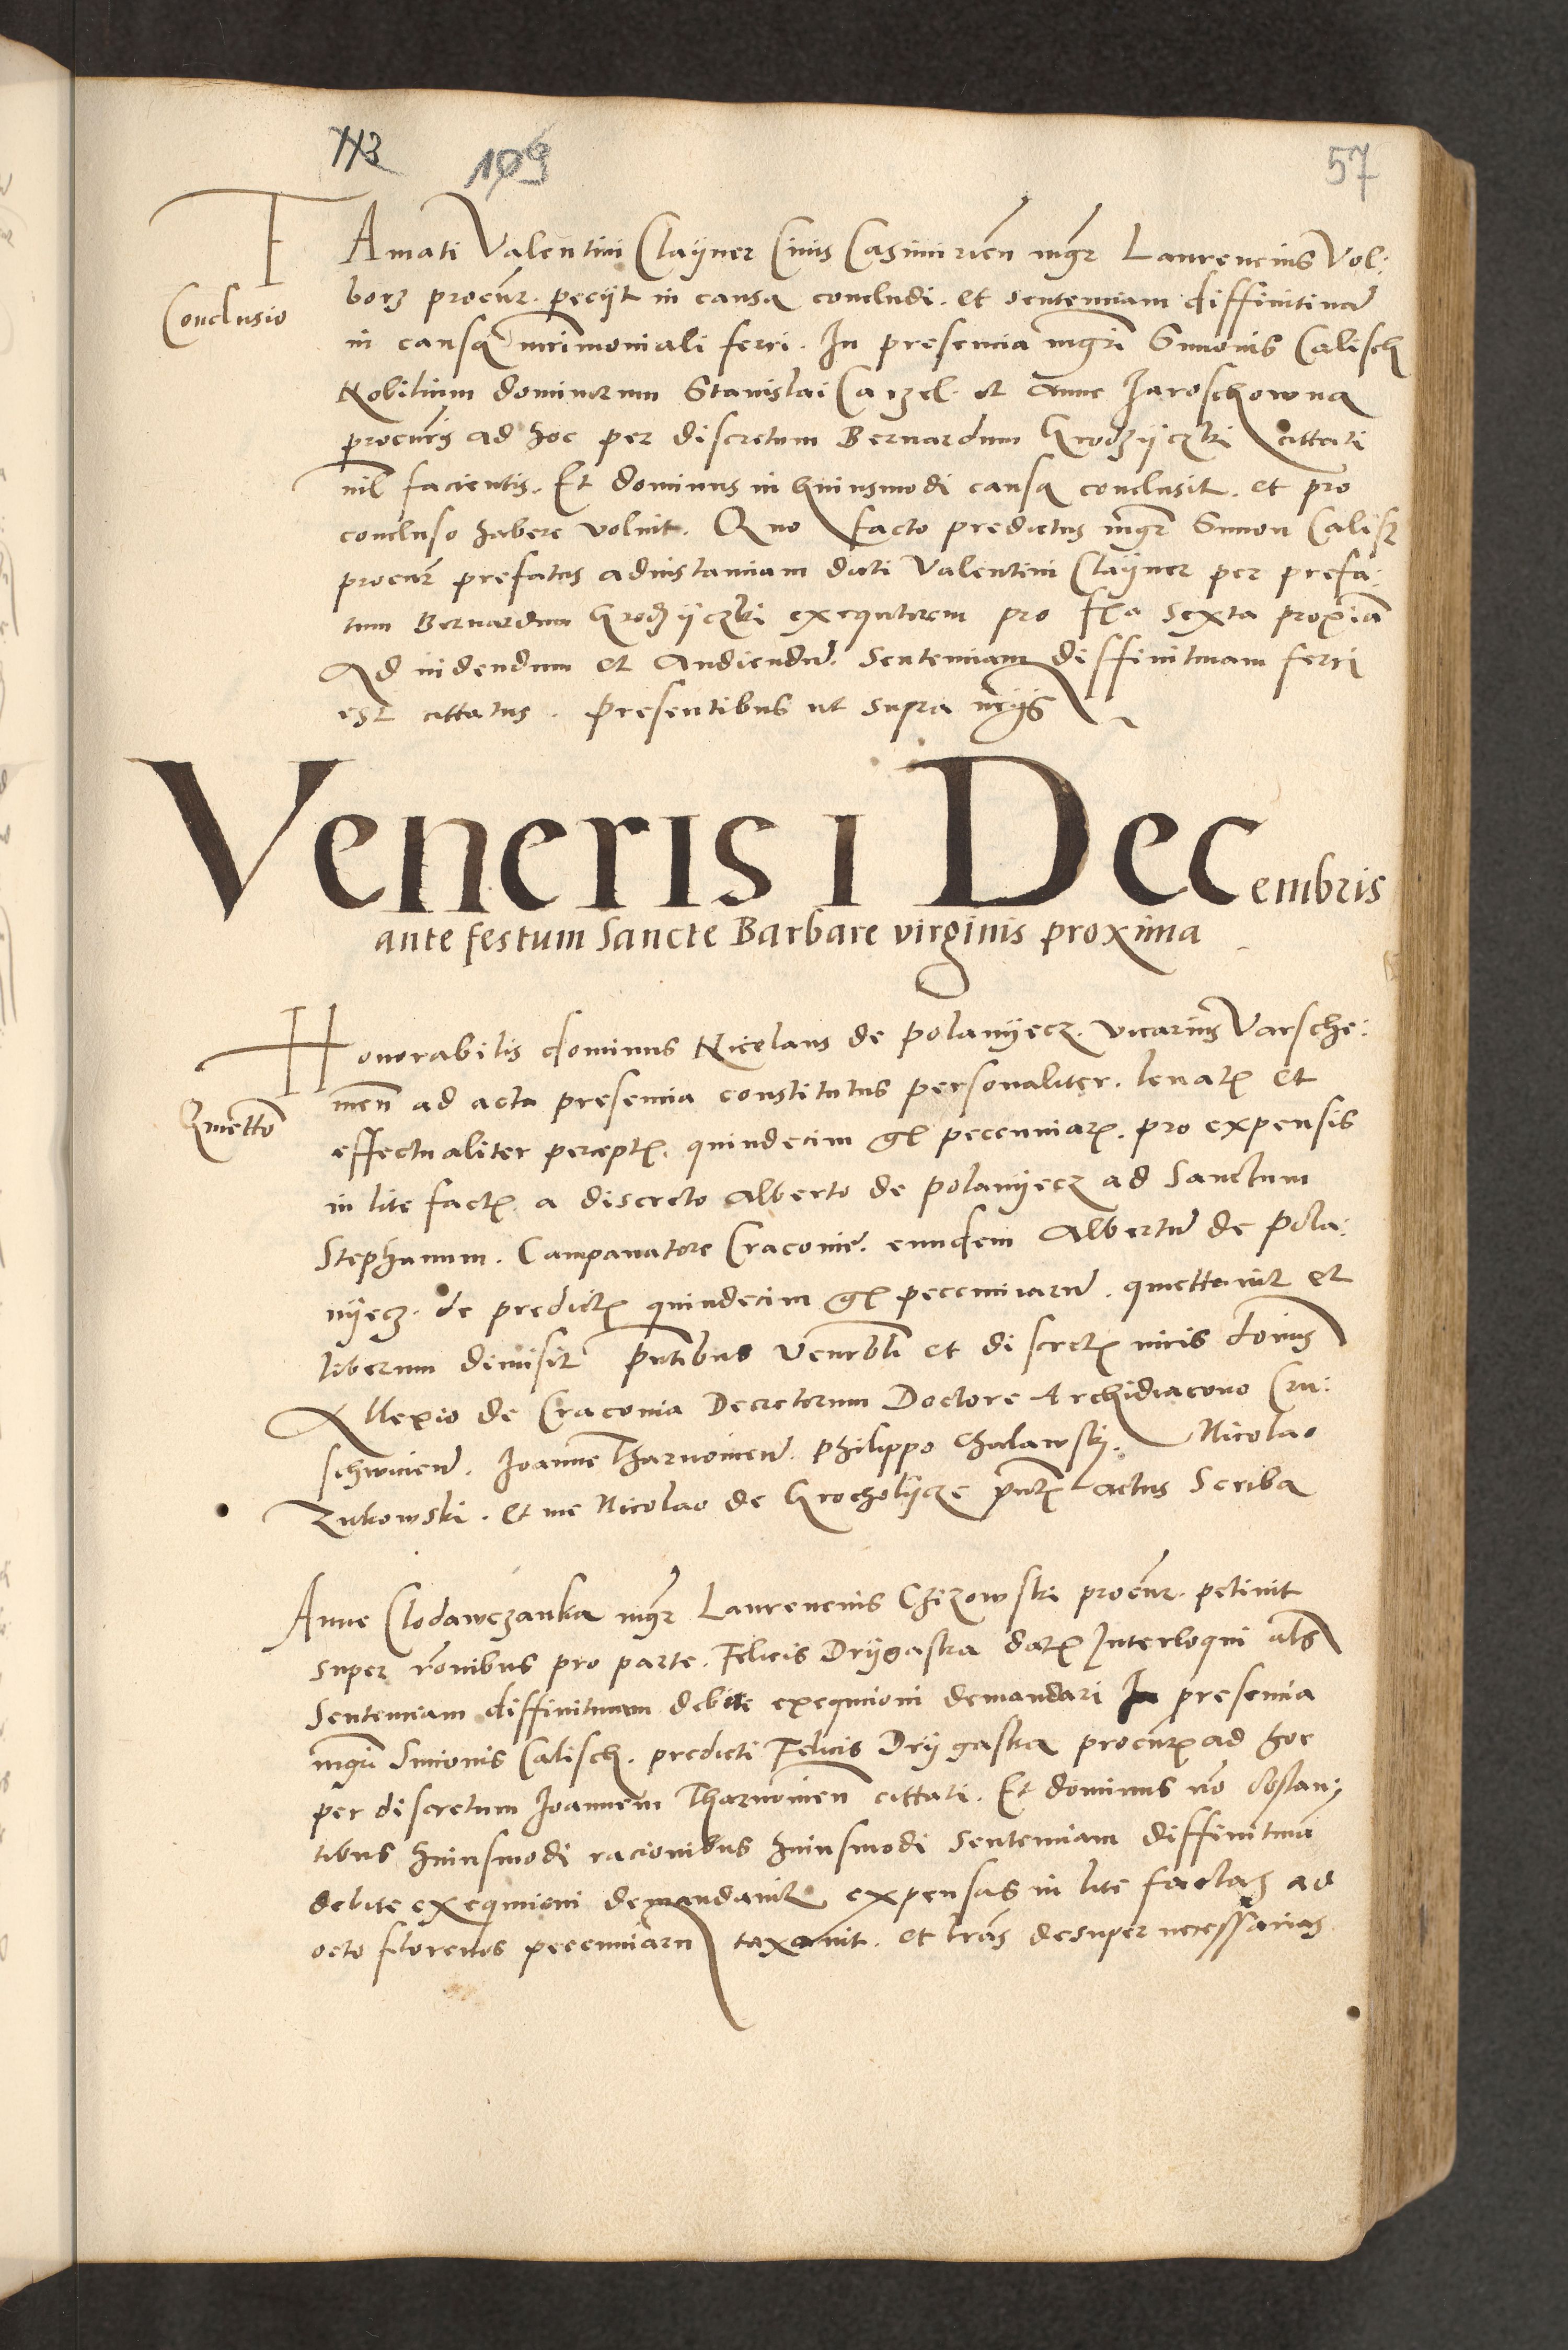 113 109 57
FAmati Valentini Clayner Civis Casimirien̄ mgr̄ Laurencius Vol:
borz procur̄. peciit in causa concludi. et sentenciam diffinitiuā
Conclusio
in causa mr̄imoniali ferri. In presencia mgr̄i Simonis Calisch
Nobilium dominorum Stanislai Carzel et Anne Jaroschowna
procur̄is ad hoc per discretum Bernardum Grodzyczki cittati
nil facientis. Et dominus in huiusmodi causa conclusit. et pro
concluso habere voluit. Quo facto predictus mgr̄ Simon Calisch
procur̄ prefatus ad instanciam dicti Valentini Clayner per prefa:
tum Bernardum Grodzyczki exequtorem pro fr̄ia sexta proximā
Ad uidendum et Audiendū. Sentenciam diffinitiuam ferri
est cittatus. presentibus ut supra
Veneris 1 Decembris
ante festum Sancte Barbare virginis proxima
Honorabilis dominus Nicolaus de polanyecz. vicarius Varsche:
uien̄ ad acta presencia constitutus personaliter. leuatis et
Quietto
effectualiter perceptis. quindecim gr̄ pecuniarum. pro expensis
in lite factis a discreto Alberto de polanyecz ad Sanctum
Stephanum. Campanatore Cracouie. eundem Albertū de pola:
nyecz. de predictis quindecim gr̄ pecuniarum. quiettauit et
liberum dimisit pn̄tibus Venerabli et discretis uiris dominis
Allexio de Cracouia Decretorum Doctore Archidiacono Cru:
schwicien̄. Joanne Tharnouien̄. Philippo Chalawski. Nicolao
Zukowski. et me Nicolao de Grocholycze pn̄tis actus Scriba
Anne Clodawczanka mgr̄ Laurencius Chizowski procur̄. petiuit
super rōnibus pro parte. Felicis Drygaska datis Interloqui als
Sentenciam diffinitiuam debite exequcioni demandari In presencia
mgr̄i Simonis Calisch. predicti Felicis Drygaska procuris ad hoc
per discretum Joannem Tharnouien̄ cittati. Et dominus nō obstan:
tibus huiusmodi racionibus huiusmodi Sentenciam diffinitiuā
debite exequcioni demandauit expensas in lite factas ad
octo florenos pecuniarum taxauit. et lr̄as desuper necessarias